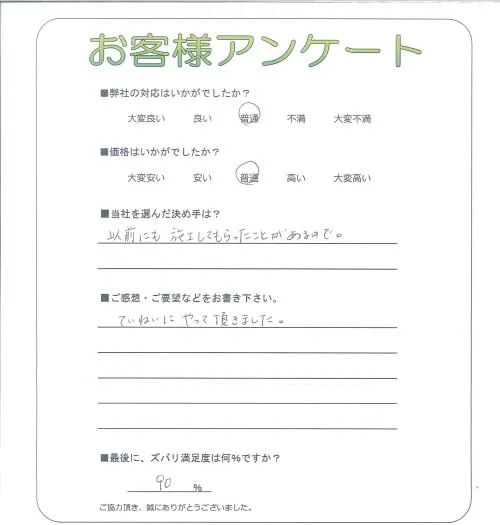 お客様アンケート
■弊社の対応はいかがでしたか？
大変良い 良い 普通 不満 大変不満
■価格はいかがでしたか？
大変安い 安い 普通 高い 大変高い
■当社を選んだ決め手は？
以前にも施工してもらったことがあるので。
■ご感想・ご要望などをお書き下さい。
ていねいにやって頂きました。
■最後に、ズバリ満足度は何％ですか？
90 ％
ご協力頂き、誠にありがとうございました。